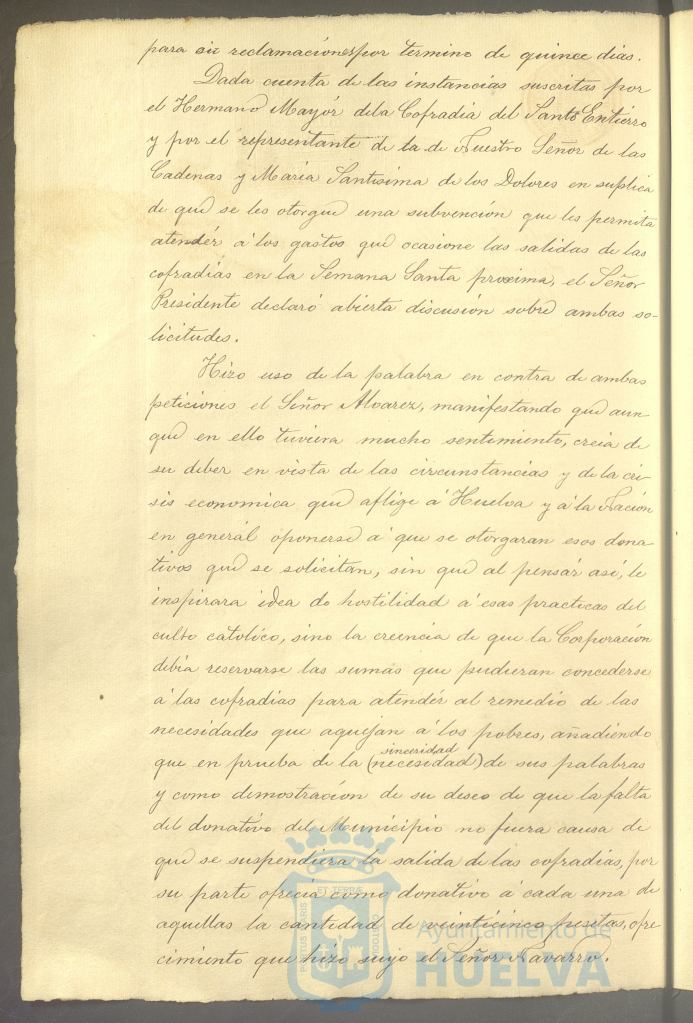 para su reclamaciones por termino de quince dias.
Dada cuenta de las instancias suscritas por
el Hermano Mayór dela Cofradia del Santo Entiérro
y por el representante de la de Nuestro Señor de las
Cadenas y Maria Santisima de los Dolores en suplica
de que se les otorgue una subvención que les permita
atendér á los gastos que ocasione las salidas de las
cofradias en la Semana Santa proxima, el Señor
Presidente declaró abierta discusión sobre ambas so-
licitudes.
Hizo uso de la palabra en contra de ambas
peticiones el Señor Alvarez, manifestando que aun-
que en ello tuviera mucho sentimiento, creia de
su deber en vista de las circunstancias y de la cri-
sis economica que aflige á Huelva y á la Nación
en generál oponerse á que se otorgaran esos dona-
tivos que se solicitan, sin que al pensár así, le
inspirara idea de hostilidad á esas practicas del
culto catolico, sino la creencia de que la Corporación
debia reservarse las sumas que pudieran concederse
á las cofradias para atendér al remedio de las
necesidades que aquejan á los pobres, añadiendo
sinceridad
que en prueba de la (necesidad) de sus palabras
y como demostracion de su deseo de que la falta
del donativo del Municipio no fuera causa de
que se suspendiera la salida de las cofradias, por
su parte ofrecia como donativo á cada una de
aquellas la cantidad de veinticinco pesetas, ofre
cimiento que hizo suyo el Señor Navarro.
PORTUS MARIS ET TERRE CUSTODIA
Ayuntamiento de
HUELVA